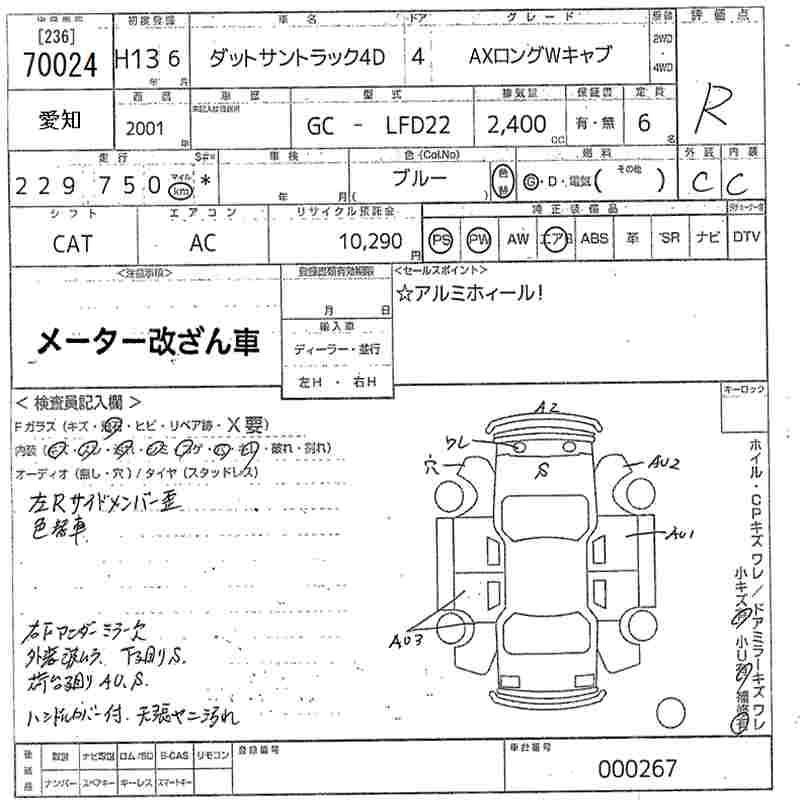 [236] 初度登録 車名 ドア グレード 評価点
70024 H13 6 ダットサントラック4D 4 AXロングWキャブ 2WD・4WD R
年 月
西暦 車歴 型式 排気量 保証書 定員
愛知 2001 年 GC - LFD22 2,400 cc 有・無 6 名
走行 車検 色(Col.No) 燃料 外装 内装
229750 マイル km * 年 月 ブルー ( ) 色替 G・D・電気( その他 ) C C
シフト エアコン リサイクル預託金 純正装備品
CAT AC 10,290 円 PS PW AW エアB ABS 革 SR ナビ DTV
<注意事項> 登録書類有効期限 <セールスポイント>
月 日 ☆アルミホィール!
メーター改ざん車 輸入車
ディーラー・並行
左H ・ 右H
<検査員記入欄> キーロック
Fガラス (キズ・飛石・ヒビ・リペア跡・X要)
オーディオ (無し・穴) / タイヤ (スタッドレス)
左Rサイドメンバー歪
色替車
A2
ワレ
穴
S
AU2
AU1
AU3
ホイル・CPキズワレ/ドアミラーキズワレ
小キズ有 小U有 補修有
右Fアンダーミラー欠
外装波ムラ、下廻りS.
荷台廻りAU.S.
ハンドルカバー付. 天張ヤニ汚れ
後送品 取説 ナビ取説 ロム/SD B-CAS リモコン 登録番号 車台番号
ナンバー スペアキー キーレス スマートキー 000267